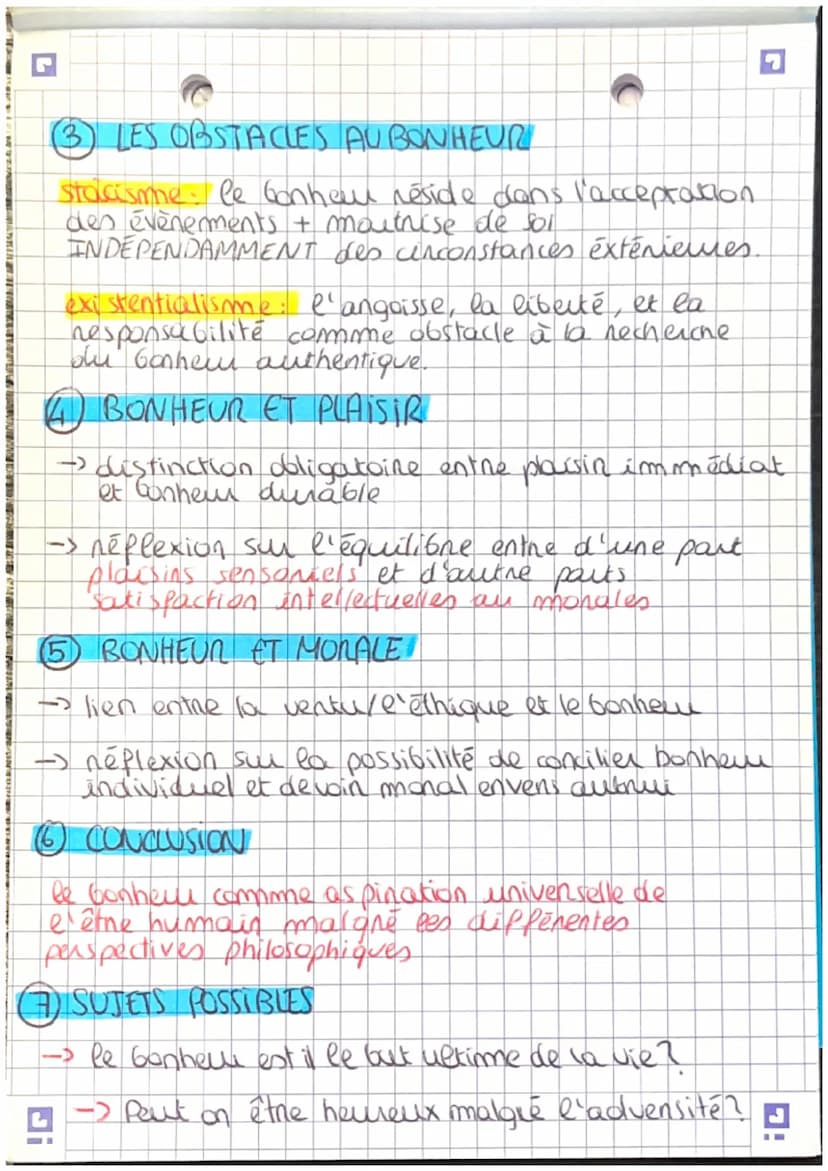 ③ LES OBSTACLES AU BONHEUR
stoïcisme : le bonheur réside dans l'acceptation
des évènements + maîtrise de soi
INDÉPENDAMMENT des circonstances éxtérieures.
existentialisme : l'angoisse, la liberté, et la
responsabilité comme obstacle à la recherche
du bonheur authentique.
④ BONHEUR ET PLAISIR
-> distinction obligatoire entre plaisir immédiat
et bonheur durable
-> réflexion sur l'équilibre entre d'une part
plaisirs sensoriels et d'autre parts
satisfaction intellectuelles ou morales
⑤ BONHEUR ET MORALE
-> lien entre la vertu/l'éthique et le bonheur
-> réflexion sur la possibilité de concilier bonheur
individuel et devoir moral envers autrui
⑥ CONCLUSION
le bonheur comme aspiration universelle de
l'être humain malgré les différentes
perspectives philosophiques
⑦ SUJETS POSSIBLES
-> le bonheur est il le but ultime de la vie ?
-> Peut on être heureux malgré l'adversité ?